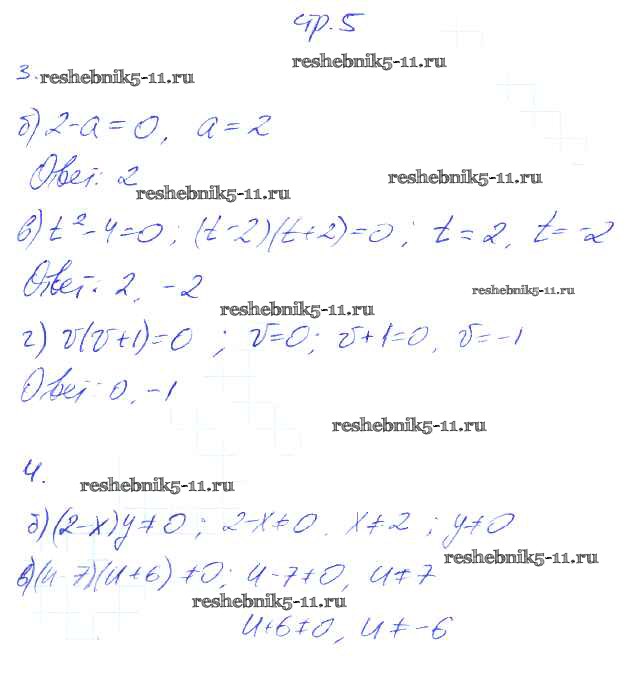 стр. 5
reshebnik5-11.ru
3. reshebnik5-11.ru
б) 2-a=0, a=2
Ответ: 2
reshebnik5-11.ru reshebnik5-11.ru
в) t²-4=0; (t-2)(t+2)=0; t=2, t=-2
Ответ: 2, -2
reshebnik5-11.ru reshebnik5-11.ru
г) v(v+1)=0 ; v=0; v+1=0, v=-1
Ответ: 0, -1
reshebnik5-11.ru
4. reshebnik5-11.ru
б) (2-x)y≠0; 2-x≠0, x≠2 ; y≠0
reshebnik5-11.ru
в) (u-7)(u+6)≠0; u-7≠0, u≠7
reshebnik5-11.ru
u+6≠0, u≠-6